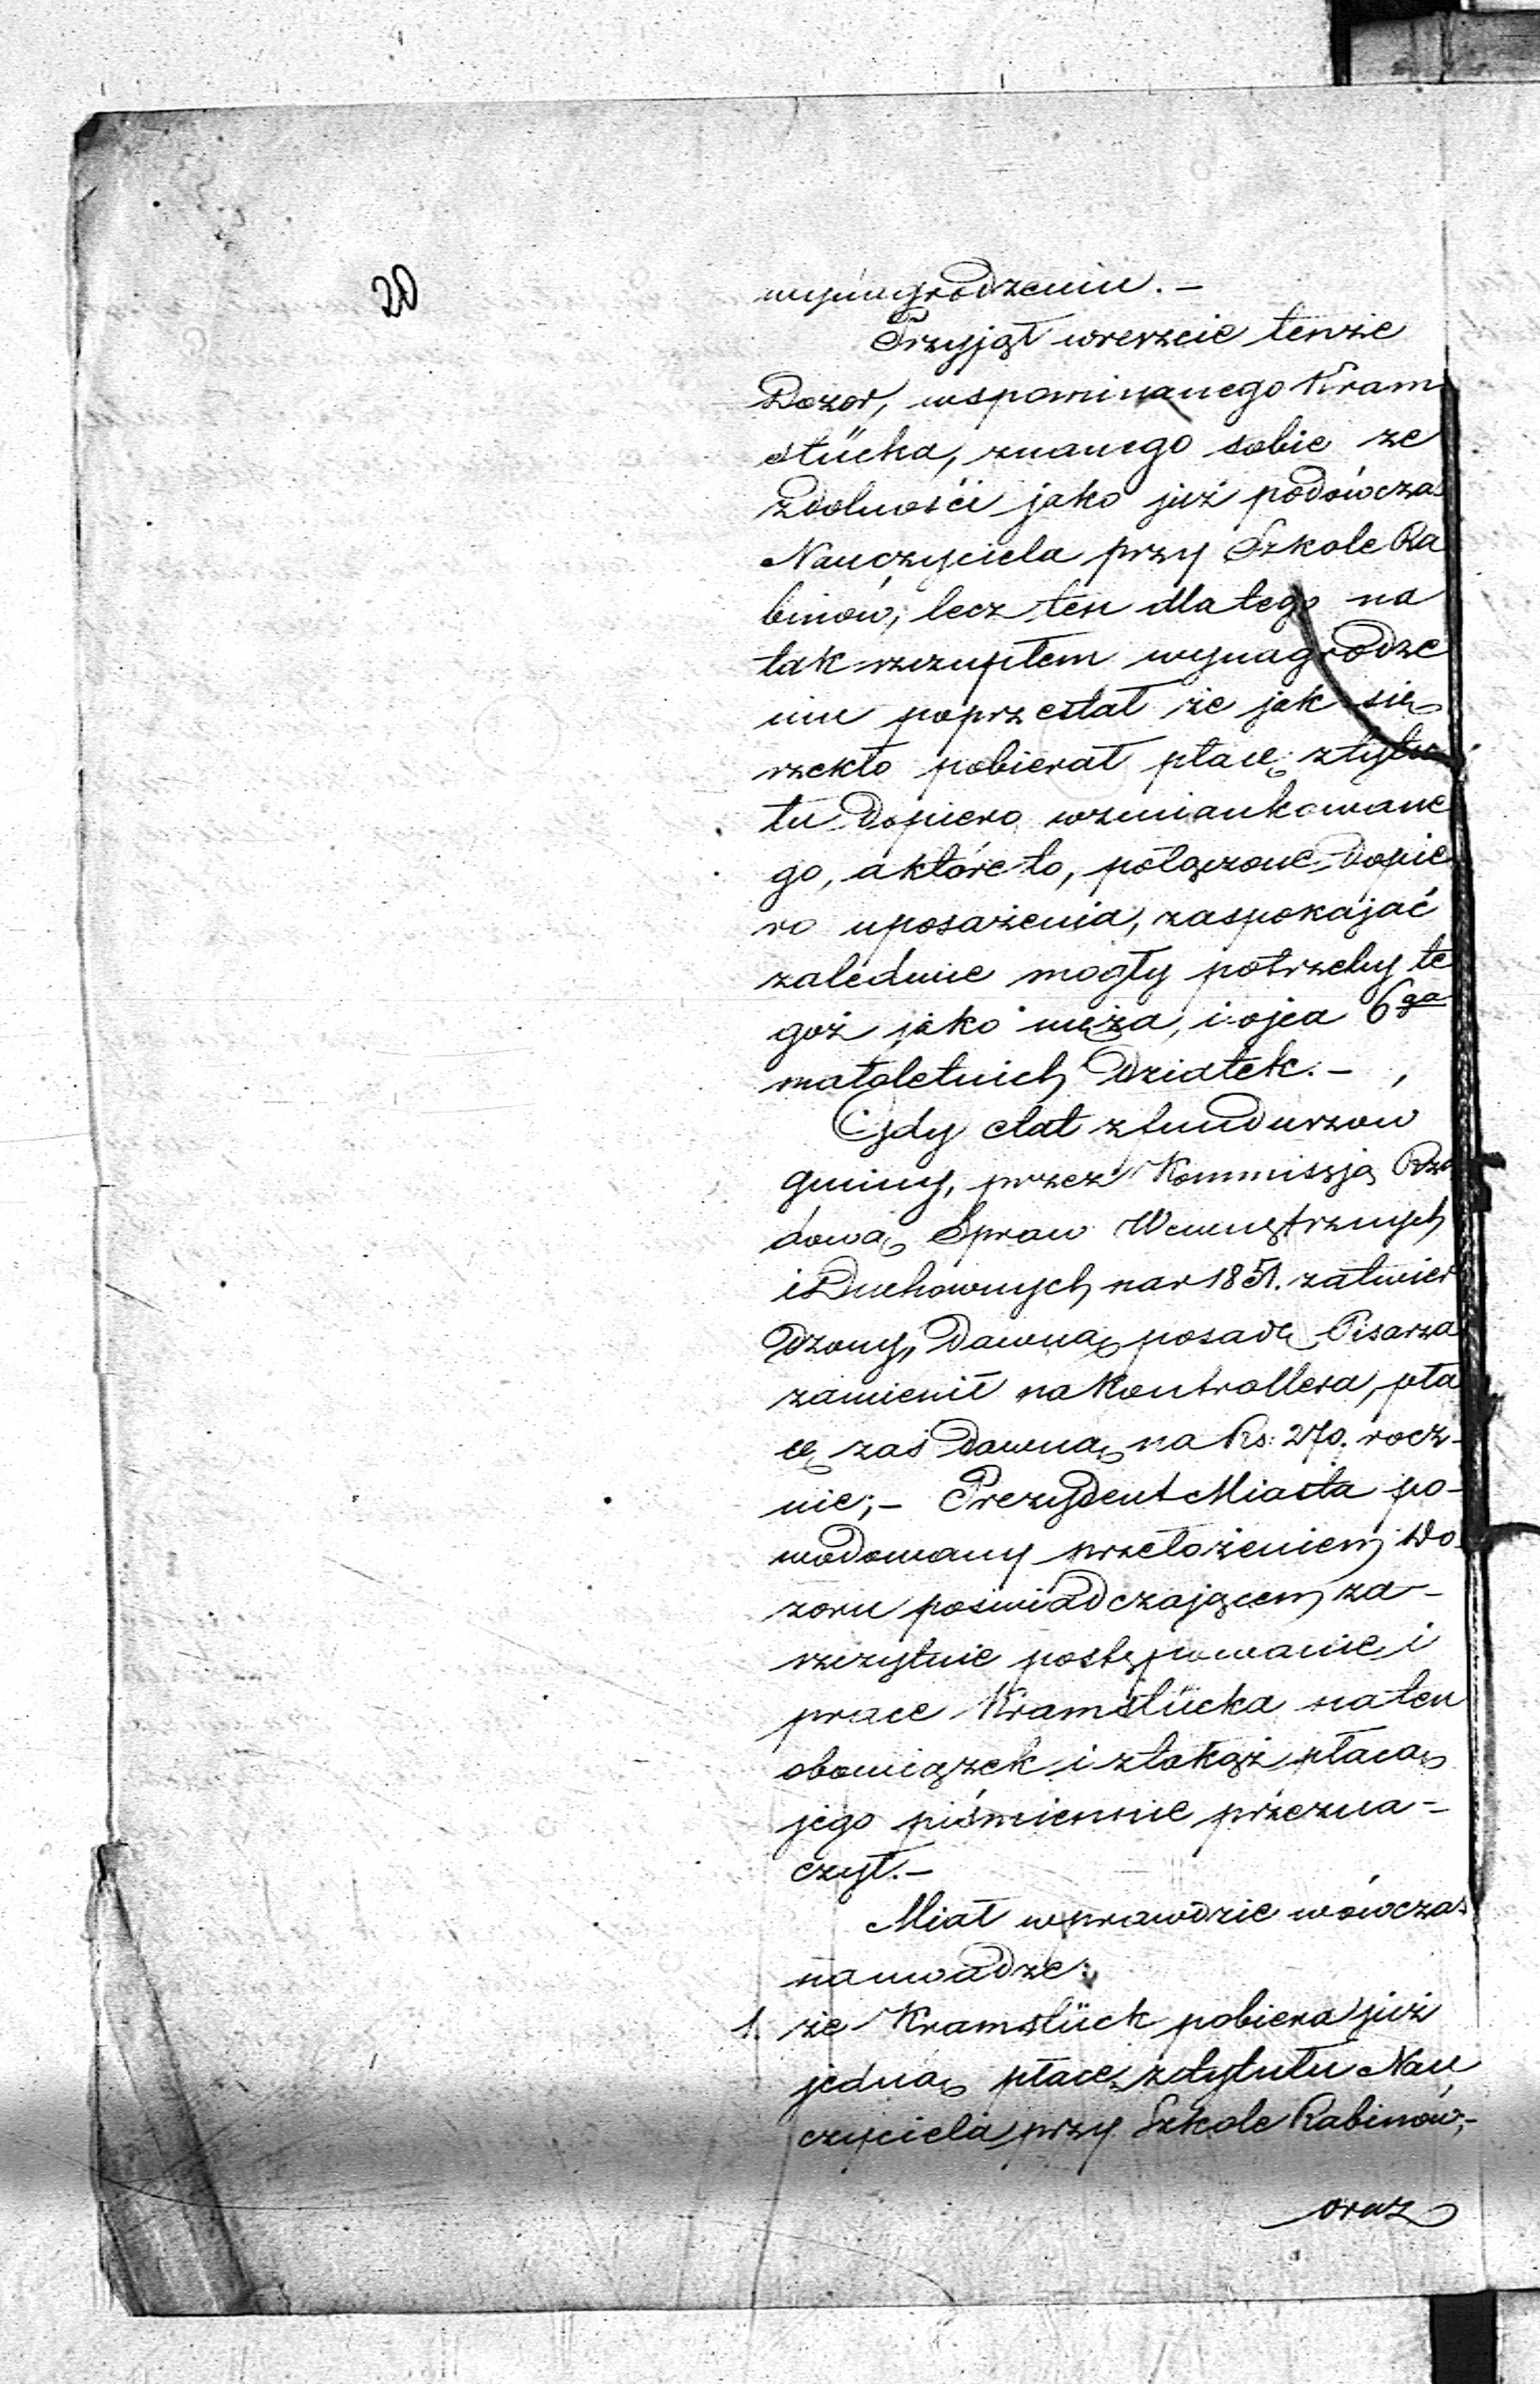 20
wynagrodzeniu. —
Przyjął wreszcie tenże
Dozor, wspominanego Kram
stücka, znanego sobie ze
zdolnośći jako już podówczas
Nauczyciela przy Szkole Ra
binów, lecz ten dla tego na
tak szczupłem wynagrodze
niu poprzestał że jak się
rzekło pobierał płacę z tytu
łu dopiero wzmiankowane
go, a które to, połączone dopie
ro uposażenia, zaspokajać
zaledwie mogły potrzeby te
goż jako męża, i ojca 6ga
małoletnich dziatek. —
Gdy etat z funduszów
gminy, przez Kommissją Rzą
dową Spraw Wewnętrznych
i Duchownych na r 1851. zatwier
dzony, dawną posadę Pisarza
zamienił na Kontrollera, pła
cę zaś dawną na Rs: 270. rocz-
nie; — Prezydent Miasta po-
wodowany przełożeniem Do-
zoru poświadczającem za-
szczytnie postępowanie i
prace Kramstücka na ten
obowiązek i z takąż płacą
jego piśmiennie przezna-
czył. —
Miał wprawdzie wówczas
na uwadze:
1. że Kramstück pobiera już
jedną płacę z tytułu Nau
czyciela przy Szkole Rabinów, —
oraz